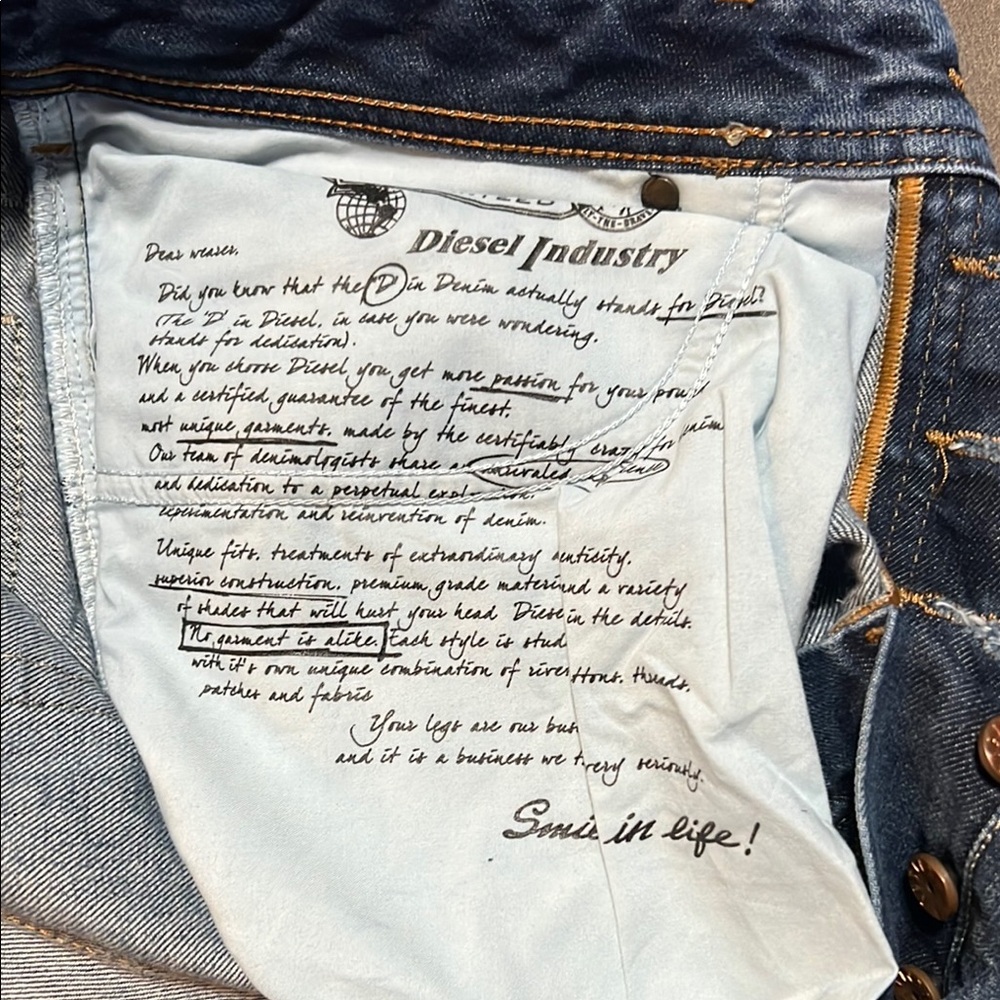 LY-THE-BRAVE
Diesel Industry
Dear wearer,
Did you know that the 'D' in Denim actually stands for Diesel?
(The 'D' in Diesel, in case you were wondering,
stands for dedication).
When you choose Diesel you get more passion for your
and a certified guarantee of the finest,
most unique garments, made by the for
Our team of denimologists share
and dedication to a perpetual
experimentation and reinvention of denim.
Unique fits, treatments of extraordinary
superior construction, premium grade and a variety
of shades that will hurt your head in the details.
No garment is alike. Each style is
with it's own unique combination of threads,
patches and
Your legs are our
and it is a business we very seriously.
in life!